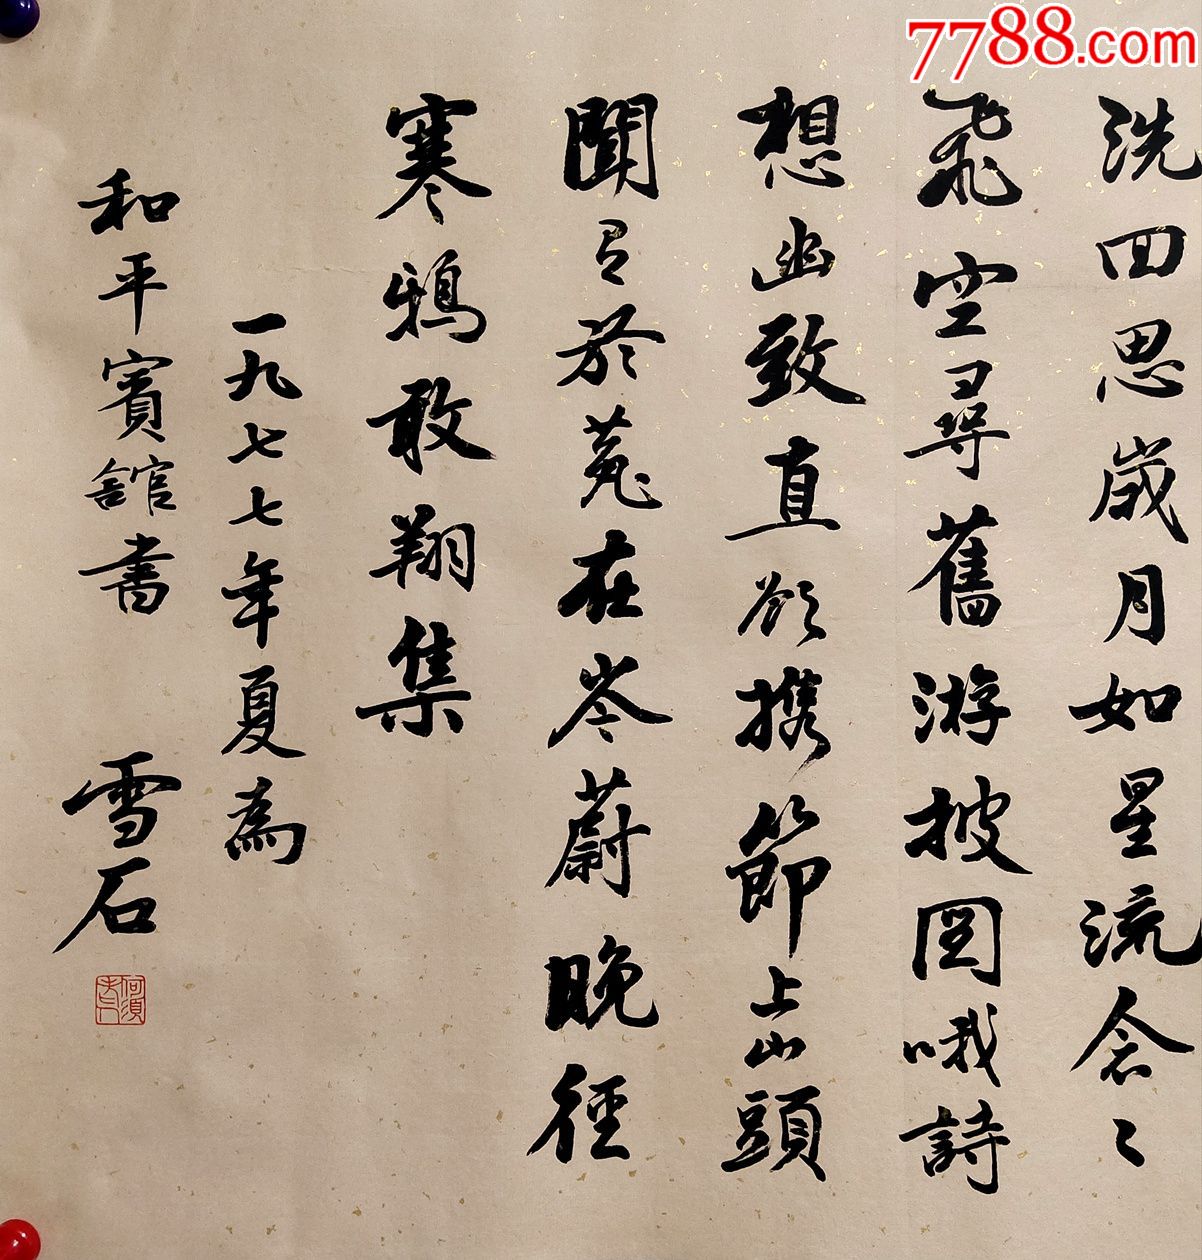 7788.com
洗回思歲月如星流念念
飛空尋舊游披図哦詩
想幽致直欲携節上山頭
聞說於菟在岑蔚晚徑
寒鴉敢翔集
一九七七年夏為
和平賓館書 雪石
何須